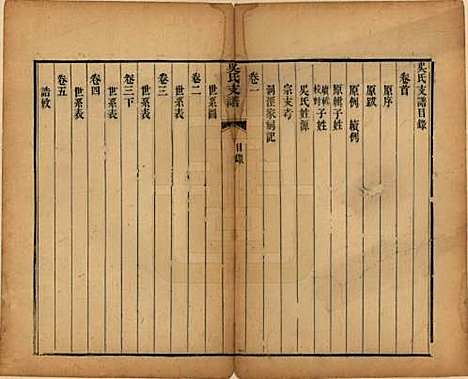 吳氏支譜目錄
卷首
原序
原跋
原例 續例
原輯子姓
續輯校對子姓
吳氏姓源
宗支考
洞涇家祠記
卷一
吳氏支譜
目錄
世系圖
卷二
世系表
卷三
世系表
卷三下
世系表
卷四
世系表
卷五
誥敕